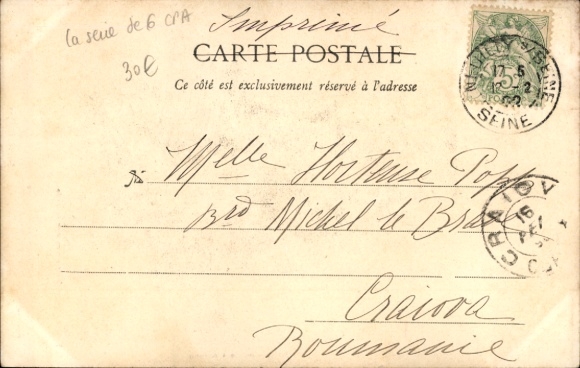 la serie de 6 CPA
30€
Imprimé
CARTE POSTALE
Ce côté est exclusivement réservé à l'adresse
NEUILLY S/SEINE
17-5
12-2
02
SEINE
5
Melle Hortense Popp
Brd Michel le Brave
CRAIOV
16
Craiova
Roumanie